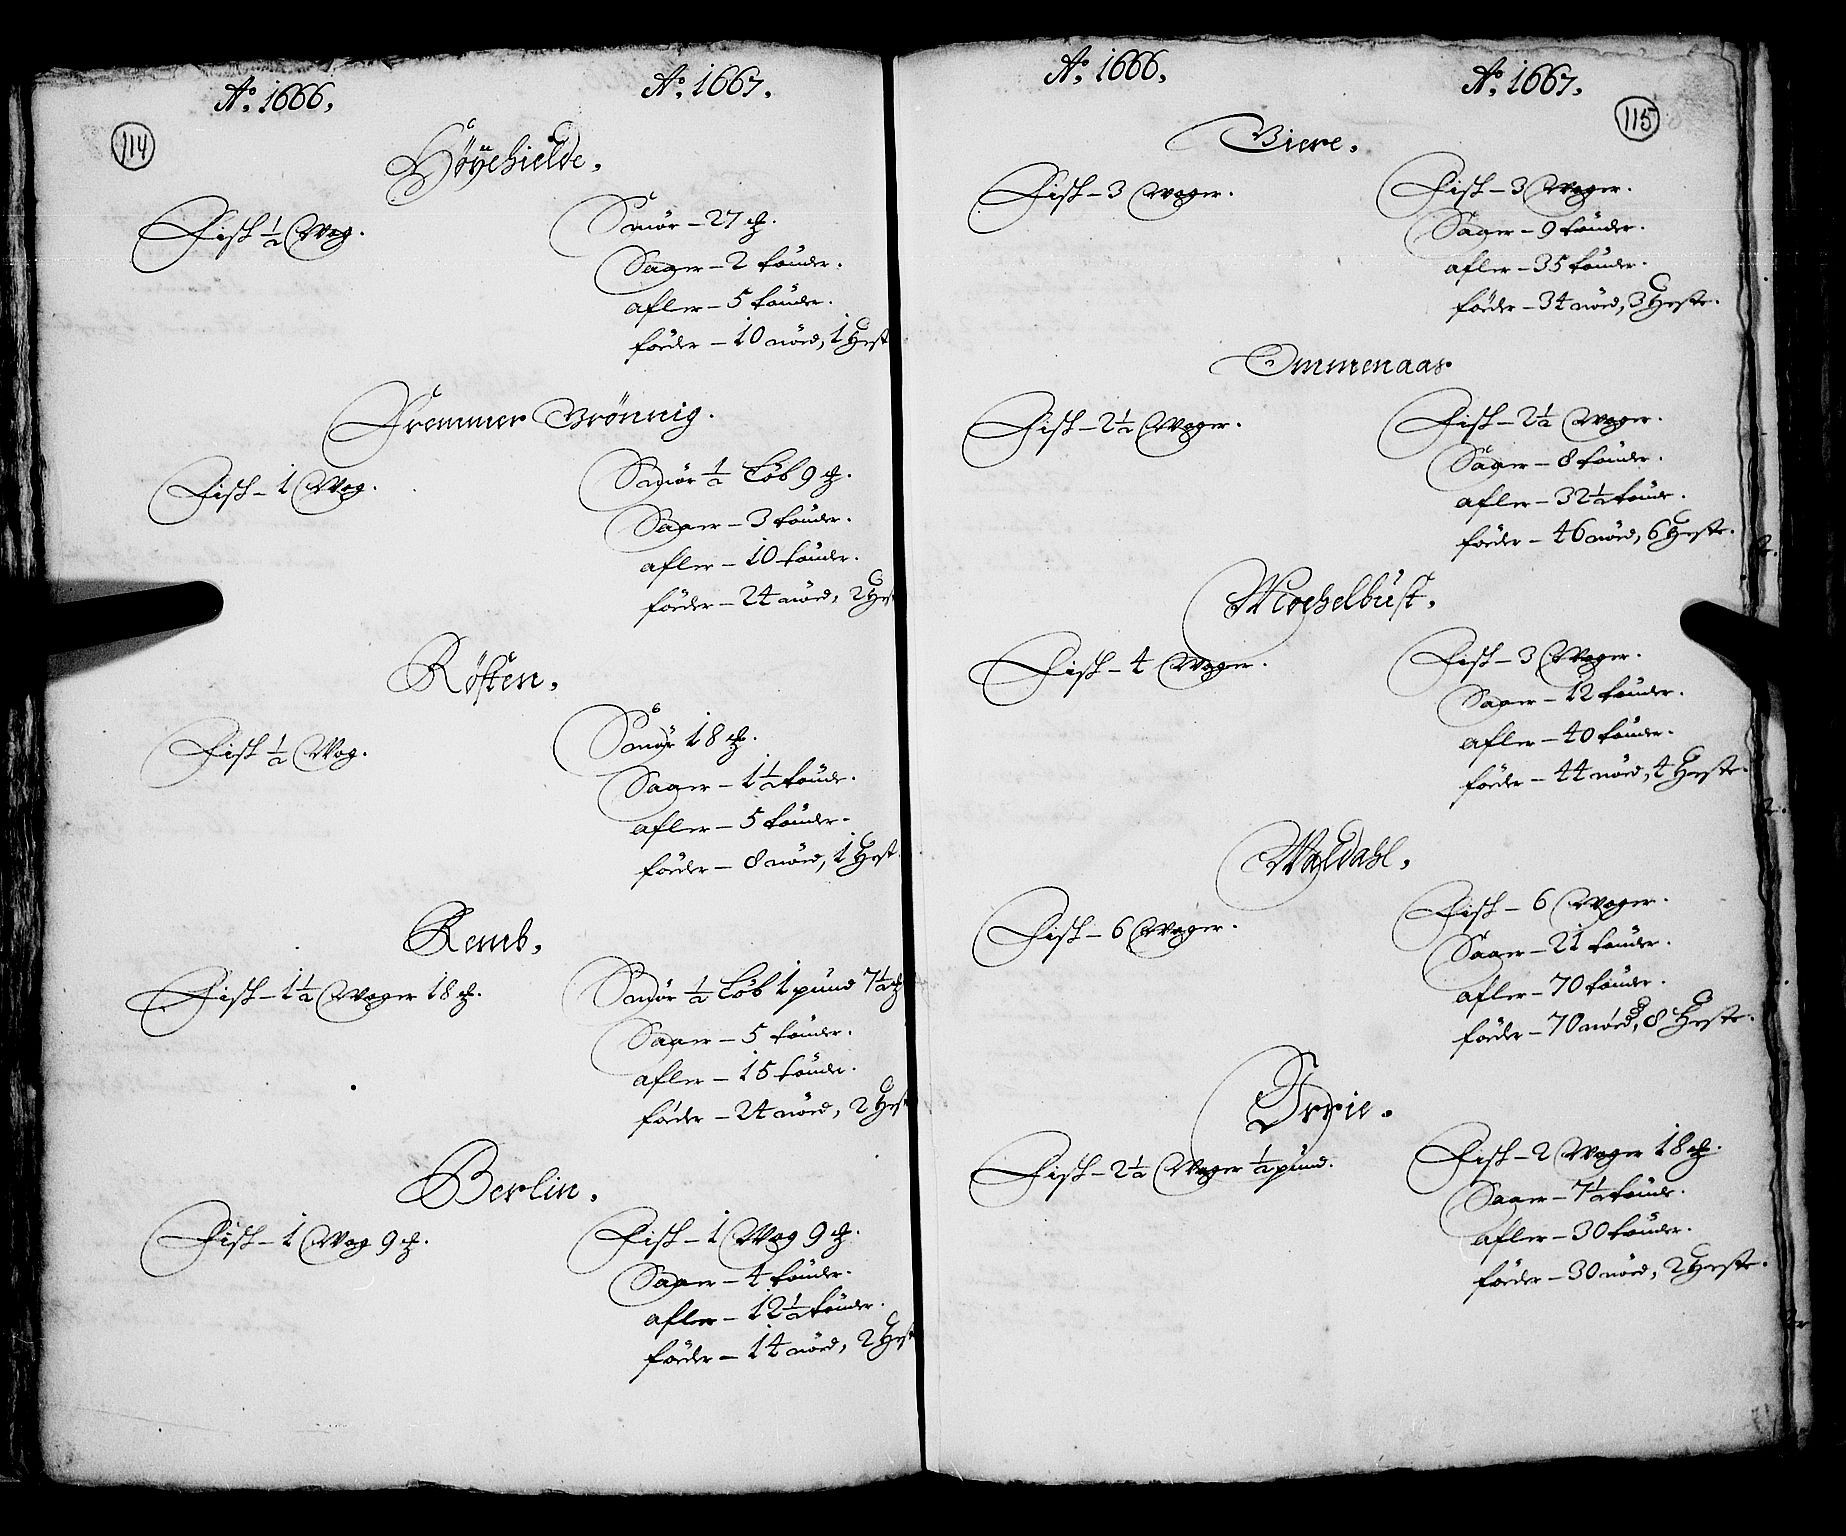 Aº. 1666. Aº. 1667.
114
Höÿehielde.
Fisk ½ Wog.
Smör – 27 ℔.
Saaer – 2 tönder.
afler – 5 tönder.
föder – 10 nöed, 1 Hest
Fremmer Brönnig.
Fisk – 1 Wog.
Smör ½ Löb 9 ℔.
Saaer – 3 tönder.
afler – 10 tönder.
föder – 24 nöed, 2 Hest
Rösten.
Fisk ½ Wog.
Smör 18 ℔.
Saaer – 1½ tönde.
afler – 5 tönder.
föder – 8 nöed, 1 Hest.
Remb.
Fisk – 1½ Woger 18 ℔.
Smör ½ Löb 1 pund 7½ ℔
Saaer – 5 tönder.
afler – 15 tönder.
föder – 24 nöed, 2 Hest
Berlin.
Fisk – 1 Wog 9 ℔.
Fisk – 1 Wog 9 ℔.
Saaer – 4 tönder.
afler – 12½ tönder.
föder – 14 nöed, 2 Hest
Aº. 1666. Aº. 1667.
115
Biere.
Fisk – 3 Woger.
Fisk – 3 Woger.
Saaer – 9 tönder.
afler – 35 tönder.
föder – 34 nöed, 3 Heste.
Ommenaas.
Fisk – 2½ Woger.
Fisk – 2½ Woger.
Saaer – 8 tönder.
afler – 32½ tönde.
föder – 46 nöed, 6 Heste.
Mochelbust.
Fisk – 4 Woger.
Fisk – 3 Woger.
Saaer – 12 tönder.
afler – 40 tönder.
föder – 44 nöed, 4 Heste.
Waldahl.
Fisk – 6 Woger.
Fisk – 6 Woger.
Saaer – 21 tönder.
afler – 70 tönder.
föder – 70 nöed, 8 Heste.
Fisk – 2½ Woger ½ pund.
Fisk – 2 Woger 18 ℔.
Saaer – 7½ tönde.
afler – 30 tönder.
föder – 30 nöed, 2 Heste.